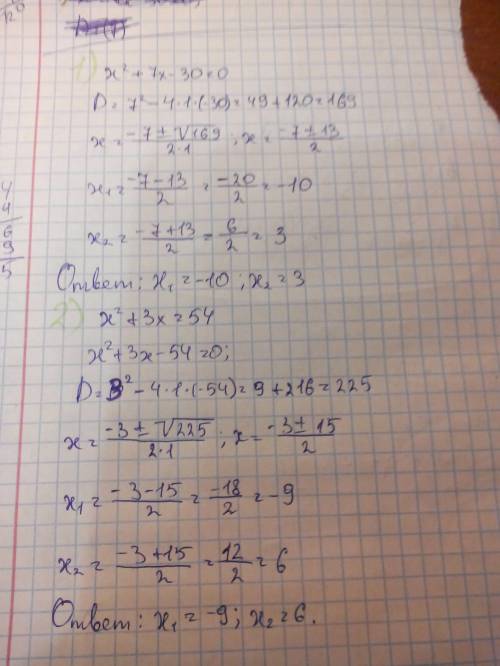 1) x² + 7x - 30 = 0
D = 7² - 4·1·(-30) = 49 + 120 = 169
x = (-7 ± √169)/(2·1) ; x = (-7 ± 13)/2
x₁ = (-7-13)/2 = -20/2 = -10
x₂ = (-7+13)/2 = 6/2 = 3
Ответ: x₁ = -10 ; x₂ = 3
2) x² + 3x = 54
x² + 3x - 54 = 0;
D = 3² - 4·1·(-54) = 9 + 216 = 225
x = (-3 ± √225)/(2·1) ; x = (-3 ± 15)/2
x₁ = (-3-15)/2 = -18/2 = -9
x₂ = (-3+15)/2 = 12/2 = 6
Ответ: x₁ = -9; x₂ = 6.